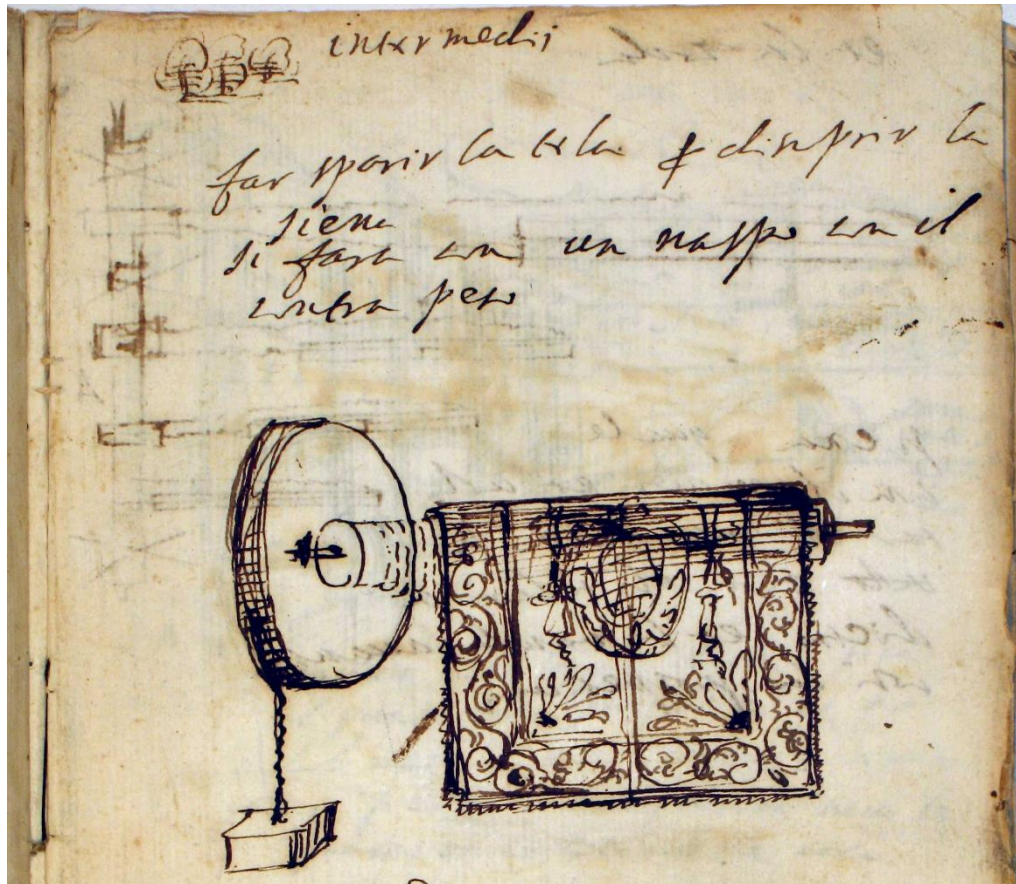 intermedij
far sparir la tela p discuprir la
siena
si farà con un naspo con il
contra peso